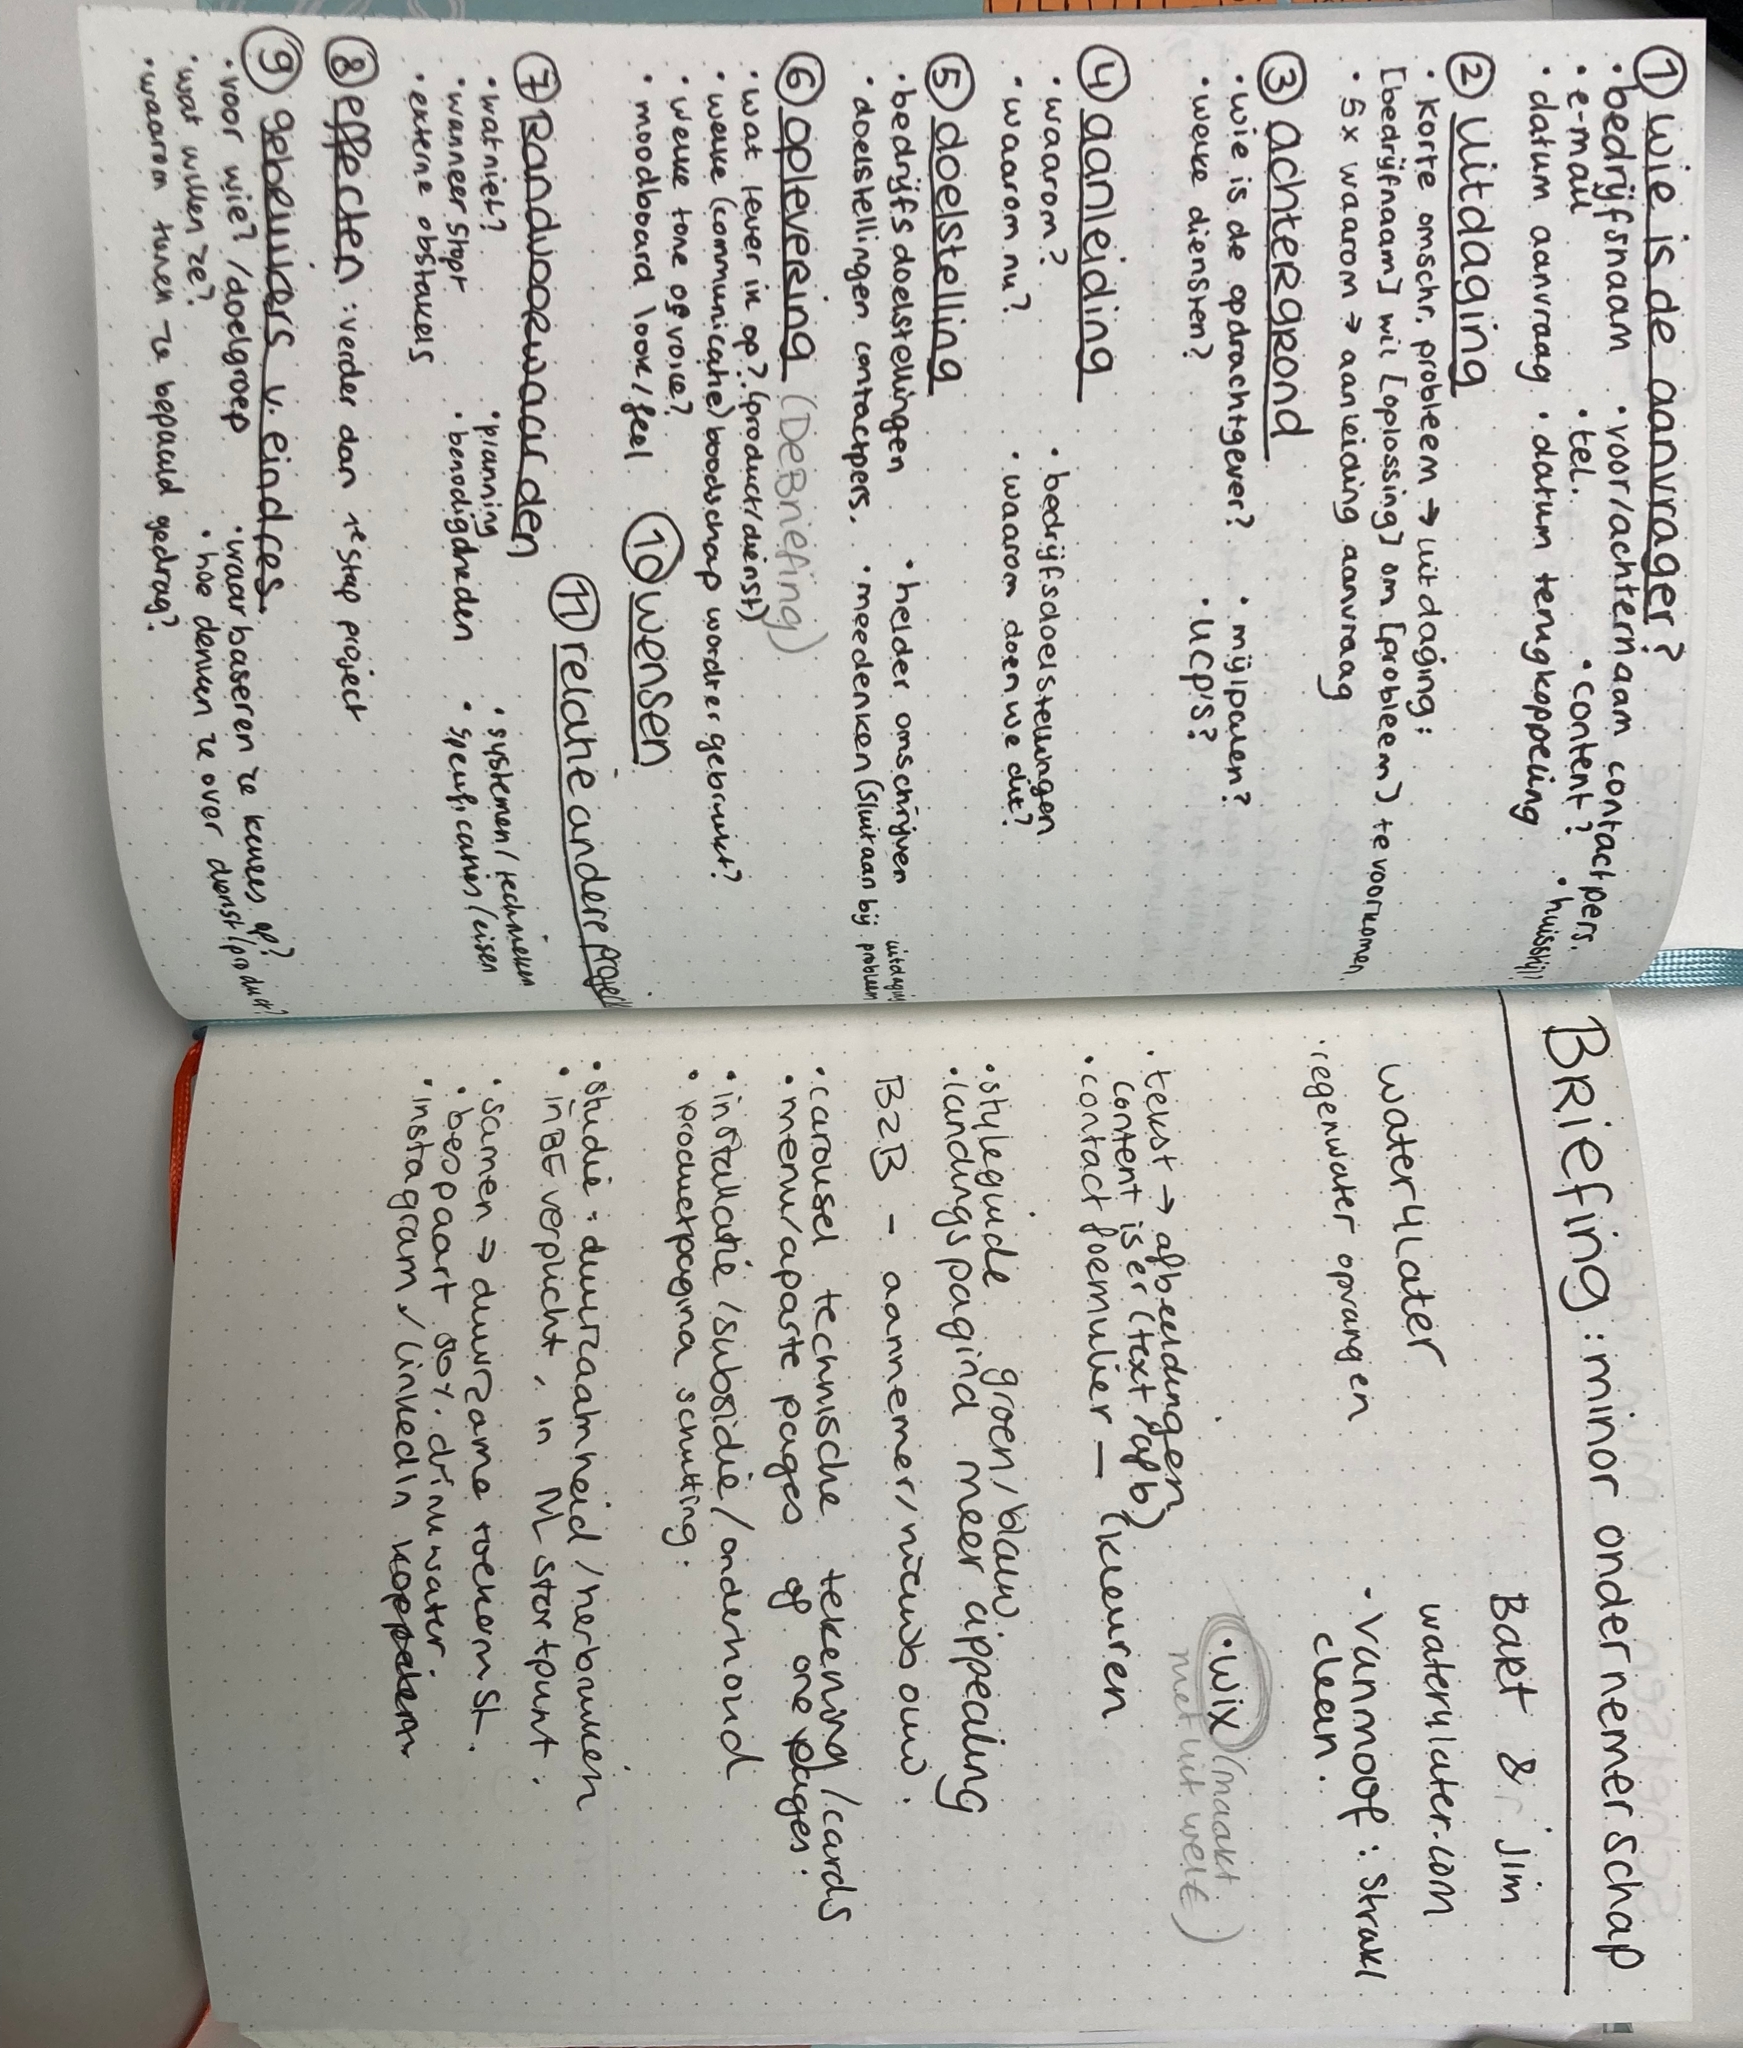 ① wie is de aanvrager?
• bedrijfsnaam • voor/achternaam contactpers.
• e-mail • tel. • content? • huisstijl?
• datum aanvraag • datum terugkoppeling
② Uitdaging
• korte omschr. probleem → uitdaging:
[bedrijfnaam] wil [oplossing] om [probleem] te voorkomen
• 5x waarom → aanleiding aanvraag
③ achtergrond
• wie is de opdrachtgever? • mijlpalen?
• welke diensten? • UCP's?
④ aanleiding
• waarom? • bedrijfsdoelstellingen
• waarom nu? • waarom doen we dit?
⑤ doelstelling
• bedrijfsdoelstellingen • helder omschrijven
• doelstellingen contactpers. • meedenken (sluit aan bij uitdaging probleem
⑥ oplevering (DeBriefing)
• wat lever ik op? (product/dienst)
• welke (communicatie) boodschap wordt er gebruikt?
• welke tone of voice?
• moodboard look/feel
⑩ wensen
⑪ relatie andere project
⑦ Randvoorwaarden
• wat niet? • planning • systemen/technieken
• wanneer stopt • benodigdheden • specificaties/eisen
• externe obstakels
⑧ effecten : verder dan 1e stap project
⑨ gebruikers v. eindres.
• voor wie? / doelgroep • waar baseren ze keuzes op?
• wat willen ze? • hoe denken ze over dienst/product?
• waarom tunen ze bepaald gedrag?
Briefing : minor ondernemerschap
Bart & Jim
water4Later water4later.com
• regenwater opvangen • Vanmoof : strak/
clean.
• tekst → afbeeldingen • wix (maakt
content is er (text/afb) niet uit welke)
• contactformulier — (kleuren
• styleguide groen/blauw.
• landingspagina meer appealing
B2B - aannemer/nieuwbouw.
• carousel technische tekening/cards
• menu/aparte pages of one pages:
• installatie/subsidie/onderhoud
• productpagina schutting.
• studie : duurzaamheid/herbruiken
• in BE verplicht, in NL startpunt.
• samen → duurzame toekomst.
• bespaart 50% drinkwater.
• instagram/linkedin koppelen